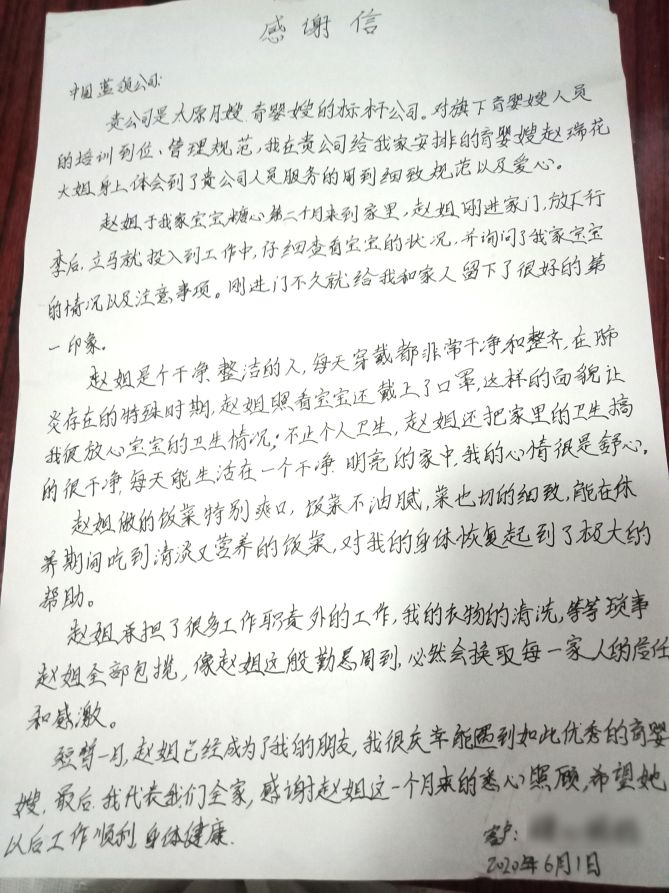 感谢信
中国蓝领公司:
贵公司是太原月嫂、育婴嫂的标杆公司。对旗下育婴嫂人员
的培训到位、管理规范,我在贵公司给我家安排的育婴嫂赵瑞花
大姐身上体会到了贵公司人员服务的周到细致规范以及爱心。
赵姐于我家宝宝糖心第二个月来到家里,赵姐刚进家门,放下行
李后,立马就投入到工作中,仔细查看宝宝的状况,并询问了我家宝宝
的情况以及注意事项。刚进门不久就给我和家人留下了很好的第
一印象。
赵姐是个干净、整洁的人,每天穿戴都非常干净和整齐,在肺
炎存在的特殊时期,赵姐照看宝宝还戴上了口罩,这样的面貌让
我很放心宝宝的卫生情况;不止个人卫生,赵姐还把家里的卫生搞
的很干净,每天能生活在一个干净、明亮的家中,我的心情很是舒心。
赵姐做的饭菜特别爽口,饭菜不油腻,菜也切的细致,能在休
养期间吃到清淡又营养的饭菜,对我的身体恢复起到了极大的
帮助。
赵姐承担了很多工作职责外的工作,我的衣物的清洗,等等琐事
赵姐全部包揽,像赵姐这般勤恳周到,必然会换取每一家人的信任
和感激。
短暂一月,赵姐已经成为了我的朋友,我很庆幸能遇到如此优秀的育婴
嫂,最后,我代表我们全家,感谢赵姐这一个月来的悉心照顾,希望她
以后工作顺利,身体健康.
客户:
2020年6月1日